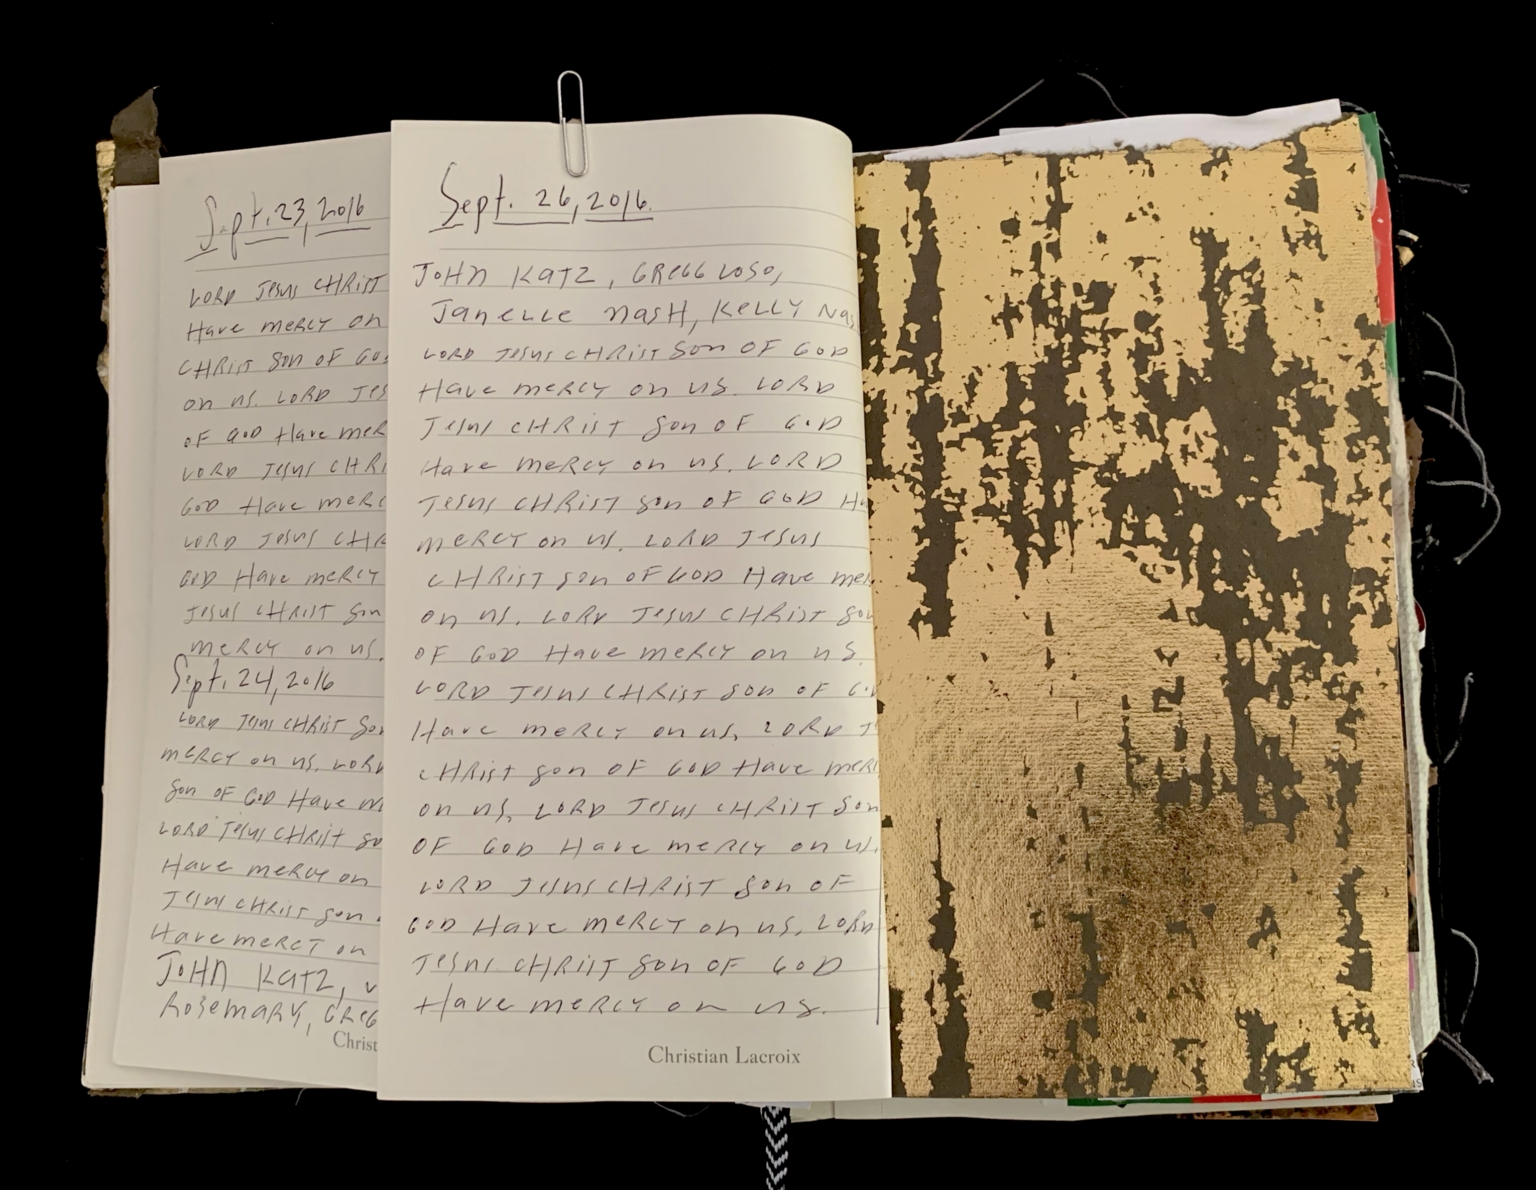 Sept. 23, 2016
LORD JESUS CHRIST
Have mercy on
CHRIST Son OF GOD
on us. LORD JES
OF GOD Have mer
LORD JESUS CHRI
GOD Have merc
LORD JESUS CHR
GOD Have mercy
JESUS CHRIST Son
mercy on us.
Sept. 24, 2016
LORD JESUS CHRIST Son
mercy on us. LORD
Son OF GOD Have m
LORD JESUS CHRIST So
Have mercy on
JESUS CHRIST Son
Have mercy on
JOHN KATZ,
Rosemary, Greg
Christ
Sept. 26, 2016.
JOHN KATZ, GREGG LOSO,
Janelle NASH, Kelly Nas
LORD JESUS CHRIST Son OF GOD
Have mercy on us. LORD
JESUS CHRIST Son OF GOD
Have mercy on us. LORD
JESUS CHRIST Son OF GOD Ha
mercy on us. LORD JESUS
CHRIST Son OF GOD Have mer
on us. LORD JESUS CHRIST Son
OF GOD Have mercy on us.
LORD JESUS CHRIST Son OF GO
Have mercy on us, LORD J
CHRIST Son OF GOD Have merc
on us, LORD JESUS CHRIST Son
OF GOD Have mercy on us.
LORD JESUS CHRIST Son OF
GOD Have mercy on us. LORD
JESUS CHRIST Son OF GOD
Have mercy on us.
Christian Lacroix